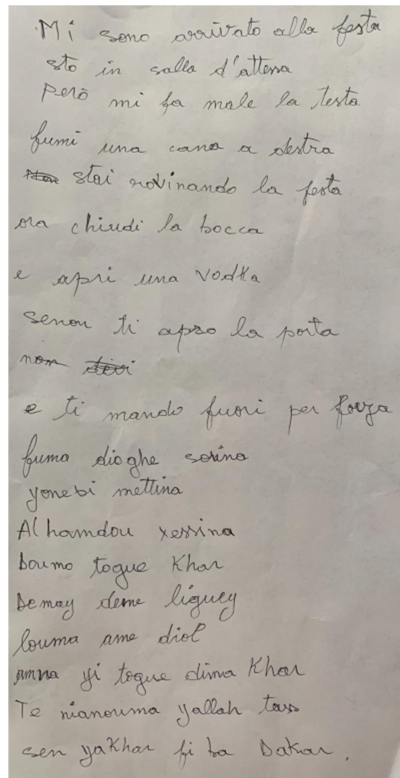 Mi sono arrivato alla festa
sto in salla d'attesa
Però mi fa male la testa
fumi una cana a destra
stai rovinando la festa
ora chiudi la bocca
e apri una vodka
senon ti apro la porta
non
e ti mando fuori per forza
fuma dioghe sorina
yonebi mettina
Alhamdou xessina
Doumo togue Khar
Demay deme liguey
louma ame diol
amna yi togue dima Khar
Te nianouma yallah taro
sen yaKhar fi ba Dakar.